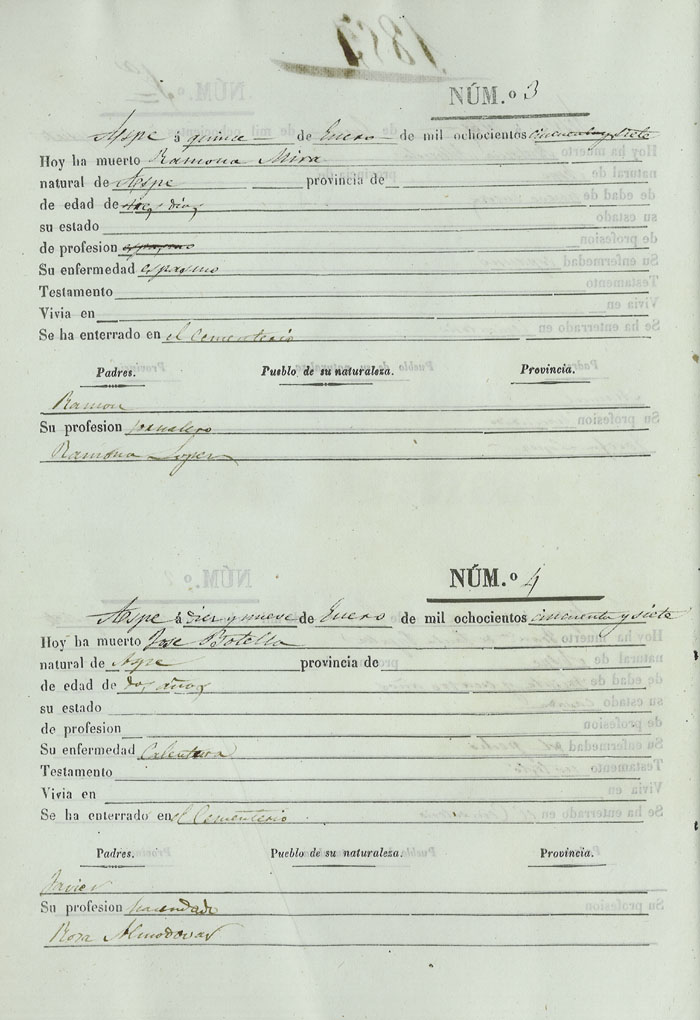 NÚM.º 3
Aspe á quince de Enero de mil ochocientos cincuenta y siete
Hoy ha muerto Ramona Mira
natural de Aspe provincia de
de edad de dias
su estado
de profesion espasmo
Su enfermedad espasmo
Testamento
Vivia en
Se ha enterrado en el Cementerio
Padres. Pueblo de su naturaleza. Provincia.
Ramon
Su profesion jornalero
Ramona Lopez
NÚM.º 4
Aspe á diez y nueve de Enero de mil ochocientos cincuenta y siete
Hoy ha muerto Jose Botella
natural de Aspe provincia de
de edad de dos años
su estado
de profesion
Su enfermedad Calentura
Testamento
Vivia en
Se ha enterrado en el Cementerio
Padres. Pueblo de su naturaleza. Provincia.
Javier
Su profesion hacendado
Rosa Almodovar